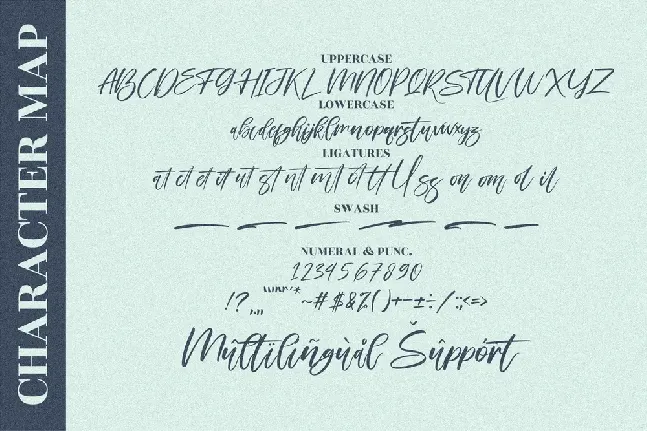 CHARACTER MAP
UPPERCASE
ABCDEFGHIJKLMNOPQRSTUVWXYZ
LOWERCASE
abcdefghijklmnopqrstuvwxyz
LIGATURES
at ct et it ut st nt mt tt ll ss on om
SWASH
NUMERAL & PUNC.
1234567890
!? ~#$&%()+-±÷/:;<=>
Mûltïlíñgùàl Šûppórt